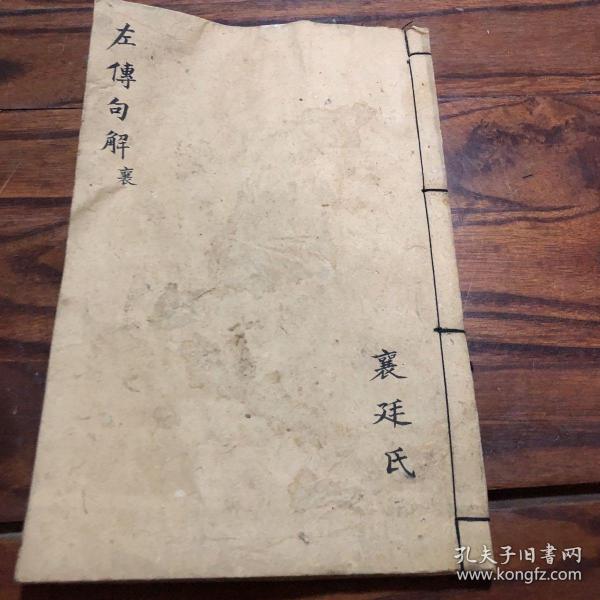 左傳句解 襄
襄廷氏
孔夫子旧書网
www.kongfz.com